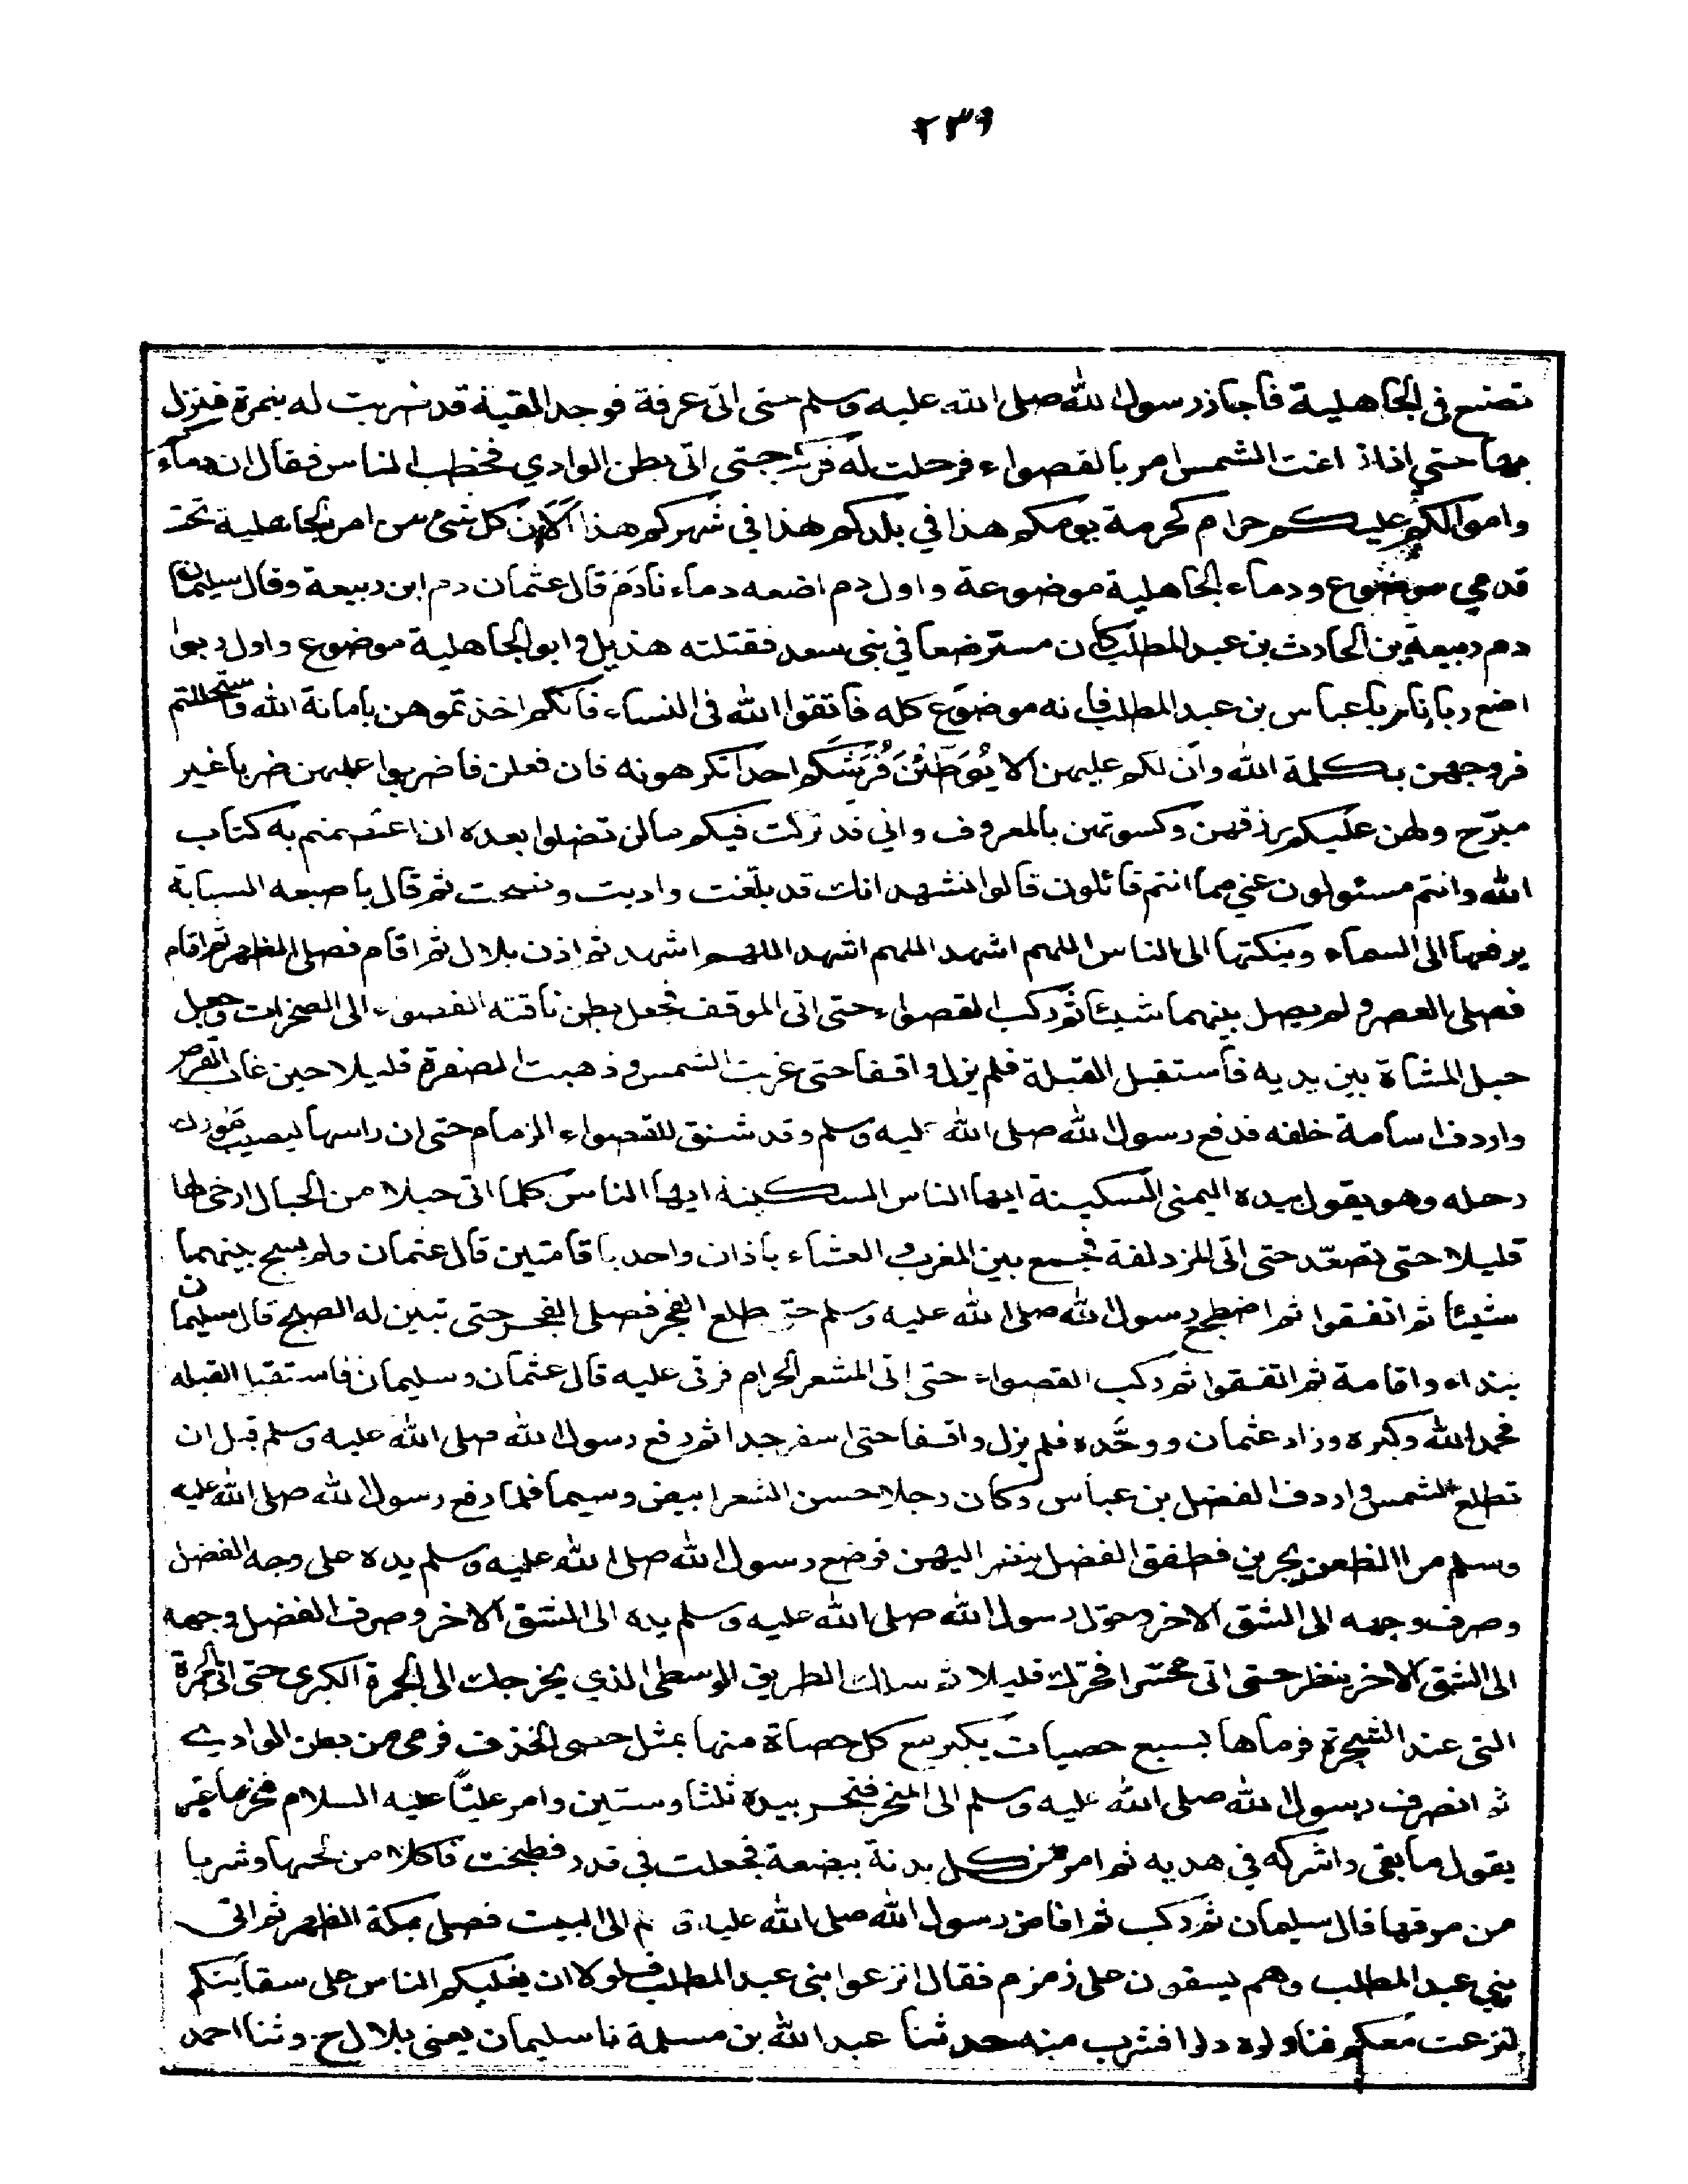 ٢٣٩
تصنع في الجاهلية فأجاز رسول الله صلى الله عليه وسلم حتى اتى عرفة فوجد القبة قد ضربت له بنمرة فنزل
بها حتى اذا زاغت الشمس امر بالقصواء فرحلت له فركب حتى اتى بطن الوادي فخطب الناس فقال ان دماءكم
واموالكم عليكم حرام كحرمة يومكم هذا في بلدكم هذا في شهركم هذا ألا ان كل شئ من امر الجاهلية تحت
قدمي موضوع ودماء الجاهلية موضوعة واول دم اضعه دماءنا دم قال عثمان دم ابن ربيعة وقال سليمان
دم ربيعة بن الحارث بن عبد المطلب كان مسترضعا في بني سعد فقتلته هذيل وربو الجاهلية موضوع واول ربوا
اضع ربانا ربا عباس بن عبد المطلب فانه موضوع كله فاتقوا الله في النساء فانكم اخذتموهن بامانة الله واستحللتم
فروجهن بكلمة الله وان لكم عليهن ألا يُوَطِئْنَ فُرُشَكم احدا تكرهونه فان فعلن فاضربوا عليهن ضربا غير
مبرّح ولهن عليكم رزقهن وكسوتهن بالمعروف واني قد تركت فيكم ما لن تضلوا بعده ان اعتصمتم به كتاب
الله وانتم مسئولون عني مما انتم قائلون قالوا نشهد انك قد بلغت واديت ونصحت ثم قال باصبعه السبابة
يرفعها الى السماء وينكتها الى الناس اللهم اشهد اللهم اشهد اللهم اشهد ثم اذن بلال ثم اقام فصلى الظهر ثم اقام
فصلى العصر ولم يصل بينهما شيئا ثم ركب القصواء حتى اتى الموقف فجعل بطن ناقته القصواء الى الصخرات وجعل
حبل المشاة بين يديه فاستقبل القبلة فلم يزل واقفا حتى غربت الشمس وذهبت الصفرة قليلا حين غاب القرص
واردف اسامة خلفه فدفع رسول الله صلى الله عليه وسلم وقد شنق للقصواء الزمام حتى ان راسها ليصيب مورك
رحله وهو يقول بيده اليمنى السكينة ايها الناس السكينة ايها الناس كلما اتى حبلا من الحبال ارخى لها
قليلا حتى تصعّد حتى اتى المزدلفة فجمع بين المغرب والعشاء باذان واحد باقامتين قال عثمان ولم يسبح بينهما
شيئا ثم اتفقوا ثم اضطجع رسول الله صلى الله عليه وسلم حتى طلع الفجر فصلى الفجر حتى تبين له الصبح قال سليمان
بنداء واقامة ثم اتفقوا ثم ركب القصواء حتى اتى المشعر الحرام فرقى عليه قال عثمان وسليمان فاستقبل القبله
فحمد الله وكبره وزاد عثمان ووحّده فلم يزل واقفا حتى اسفر جدا ثم دفع رسول الله صلى الله عليه وسلم قبل ان
تطلع الشمس واردف الفضل بن عباس وكان رجلا حسن الشعر ابيض وسيما فلما دفع رسول الله صلى الله عليه
وسلم مر الظعن يجرين فطفق الفضل ينظر اليهن فوضع رسول الله صلى الله عليه وسلم يده على وجه الفضل
وصرف وجهه الى الشق الاخر وحوّل رسول الله صلى الله عليه وسلم يده الى الشق الاخر وصرف الفضل وجهه
الى الشق الاخر ينظر حتى اتى محسّرا فحرّك قليلا ثم سلك الطريق الوسطى الذي يخرجك الى الجمرة الكبرى حتى اتى الجمرة
التي عند الشجرة فرماها بسبع حصيات يكبر مع كل حصاة منها بمثل حصى الخذف فرمى من بطن الوادي
ثم انصرف رسول الله صلى الله عليه وسلم الى المنحر فنحر بيده ثلثا وستين وامر عليّا عليه السلام فنحر ما غبر
يقول ما بقى واشركه في هديه ثم امر من كل بدنة ببضعة فجعلت في قدر فطبخت فاكلا من لحمها وشربا
من مرقها قال سليمان ثم ركب ثم افاض رسول الله صلى الله عليه وسلم الى البيت فصلى بمكة الظهر ثم اتى
بني عبد المطلب وهم يسقون على زمزم فقال انزعوا بني عبد المطلب فلولا ان يغلبكم الناس على سقايتكم
لنزعت معكم فناولوه دلوا فشرب منه حدثنا عبد الله بن مسلمة نا سليمان يعني بلال ح وثنا احمد